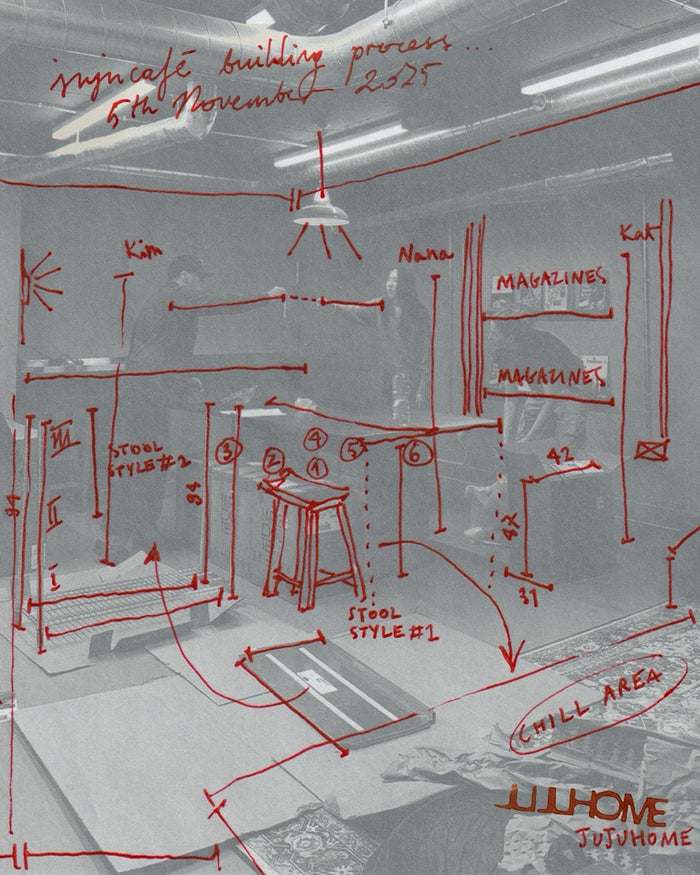 jujucafé building process...
5th November 2025
Kim
Nana
Kat
MAGAZINES
MAGAZINES
III
II
I
STOOL
STYLE #2
94
94
3
2
4
1
5
6
42
42
31
STOOL
STYLE #1
CHILL AREA
JUJUHOME
JUJUHOME